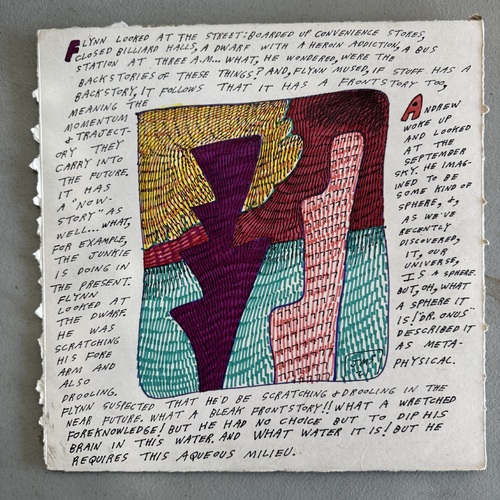 FLYNN LOOKED AT THE STREET: BOARDED UP CONVENIENCE STORES,
CLOSED BILLIARD HALLS, A DWARF WITH A HEROIN ADDICTION, A BUS
STATION AT THREE A.M... WHAT, HE WONDERED, WERE THE
BACKSTORIES OF THESE THINGS? AND, FLYNN MUSED, IF STUFF HAS A
BACKSTORY, IT FOLLOWS THAT IT HAS A FRONTSTORY TOO,
MEANING THE
MOMENTUM
& TRAJECT-
ORY THEY
CARRY INTO
THE FUTURE.
IT HAS
A "NOW-
STORY" AS
WELL... WHAT,
FOR EXAMPLE,
THE JUNKIE
IS DOING IN
THE PRESENT.
FLYNN
LOOKED AT
THE DWARF.
HE WAS
SCRATCHING
HIS FORE
ARM AND
ALSO
DROOLING.
FLYNN SUSPECTED THAT HE'D BE SCRATCHING & DROOLING IN THE
NEAR FUTURE. WHAT A BLEAK FRONTSTORY!! WHAT A WRETCHED
FOREKNOWLEDGE! BUT HE HAD NO CHOICE BUT TO DIP HIS
BRAIN IN THIS WATER. AND WHAT WATER IT IS! BUT HE
REQUIRES THIS AQUEOUS MILIEU.
ANDREW
WOKE UP
AND LOOKED
AT THE
SEPTEMBER
SKY. HE IMAG-
INED TO BE
SOME KIND OF
SPHERE, &,
AS WE'VE
RECENTLY
DISCOVERED,
IT, OUR
UNIVERSE,
IS A SPHERE.
BUT, OH, WHAT
A SPHERE IT
IS! "DR. ONUS"
DESCRIBED IT
AS META-
PHYSICAL.